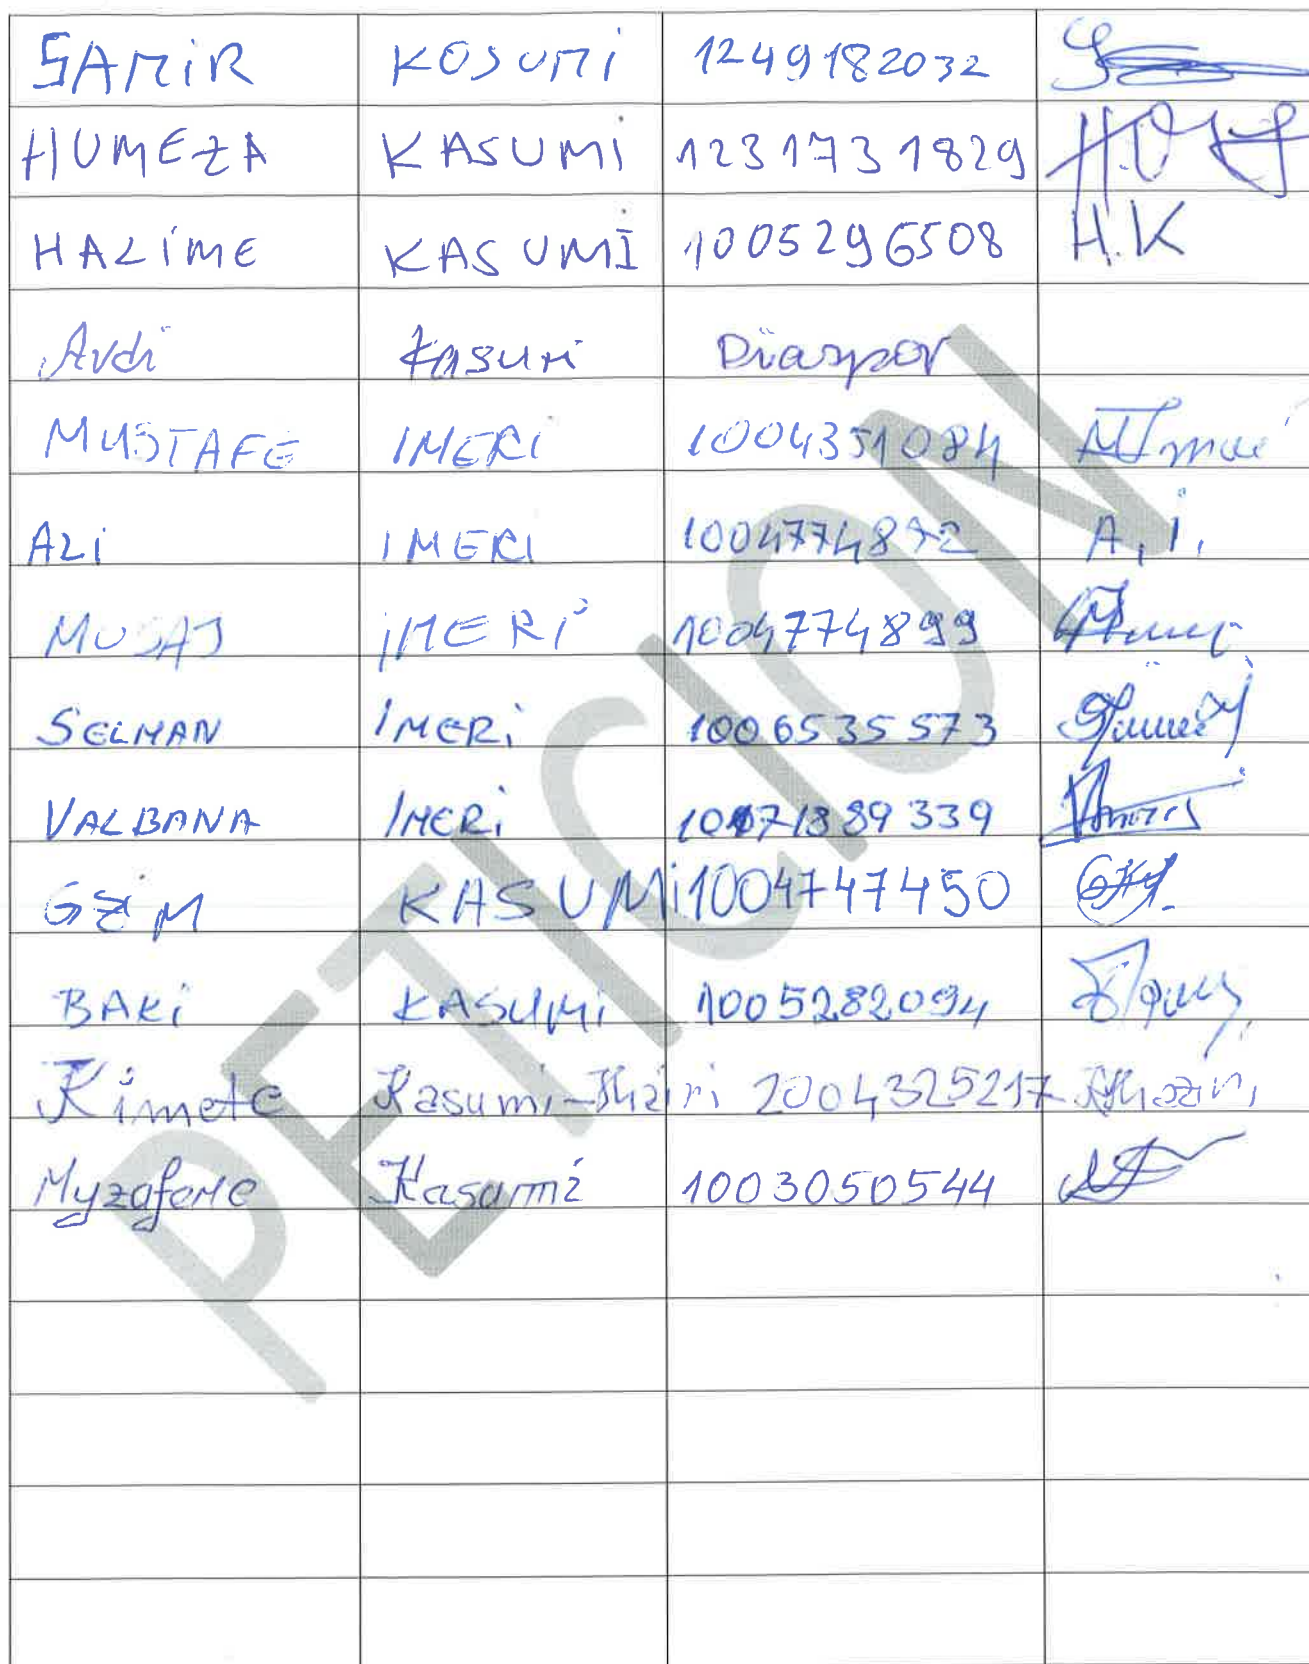 SAMiR KOSUMi 1249182032
HUMEZA KASUMI 1231731829
HALiME KASUMI 1005296508 H.K
Avdi Kasumi Diaspor
MUSTAFE IMERi 1004351084
ALi IMERI 1004774872 A.I.
MUSAJ iMERi 1004774899
SELMAN IMERi 1006535573
VALBANA IMERi
GZIM KASUMi 1004747450
BAKi KASUMi 1005282094
Kimete Kasumi-Thaqi 2004325217
Myzafere Kasumi 1003050544
PETICION